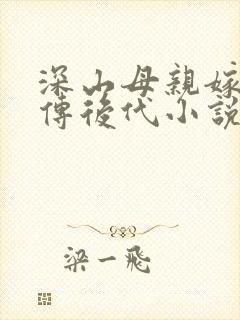 深山母親嫁
傳後代小說
梁一飛